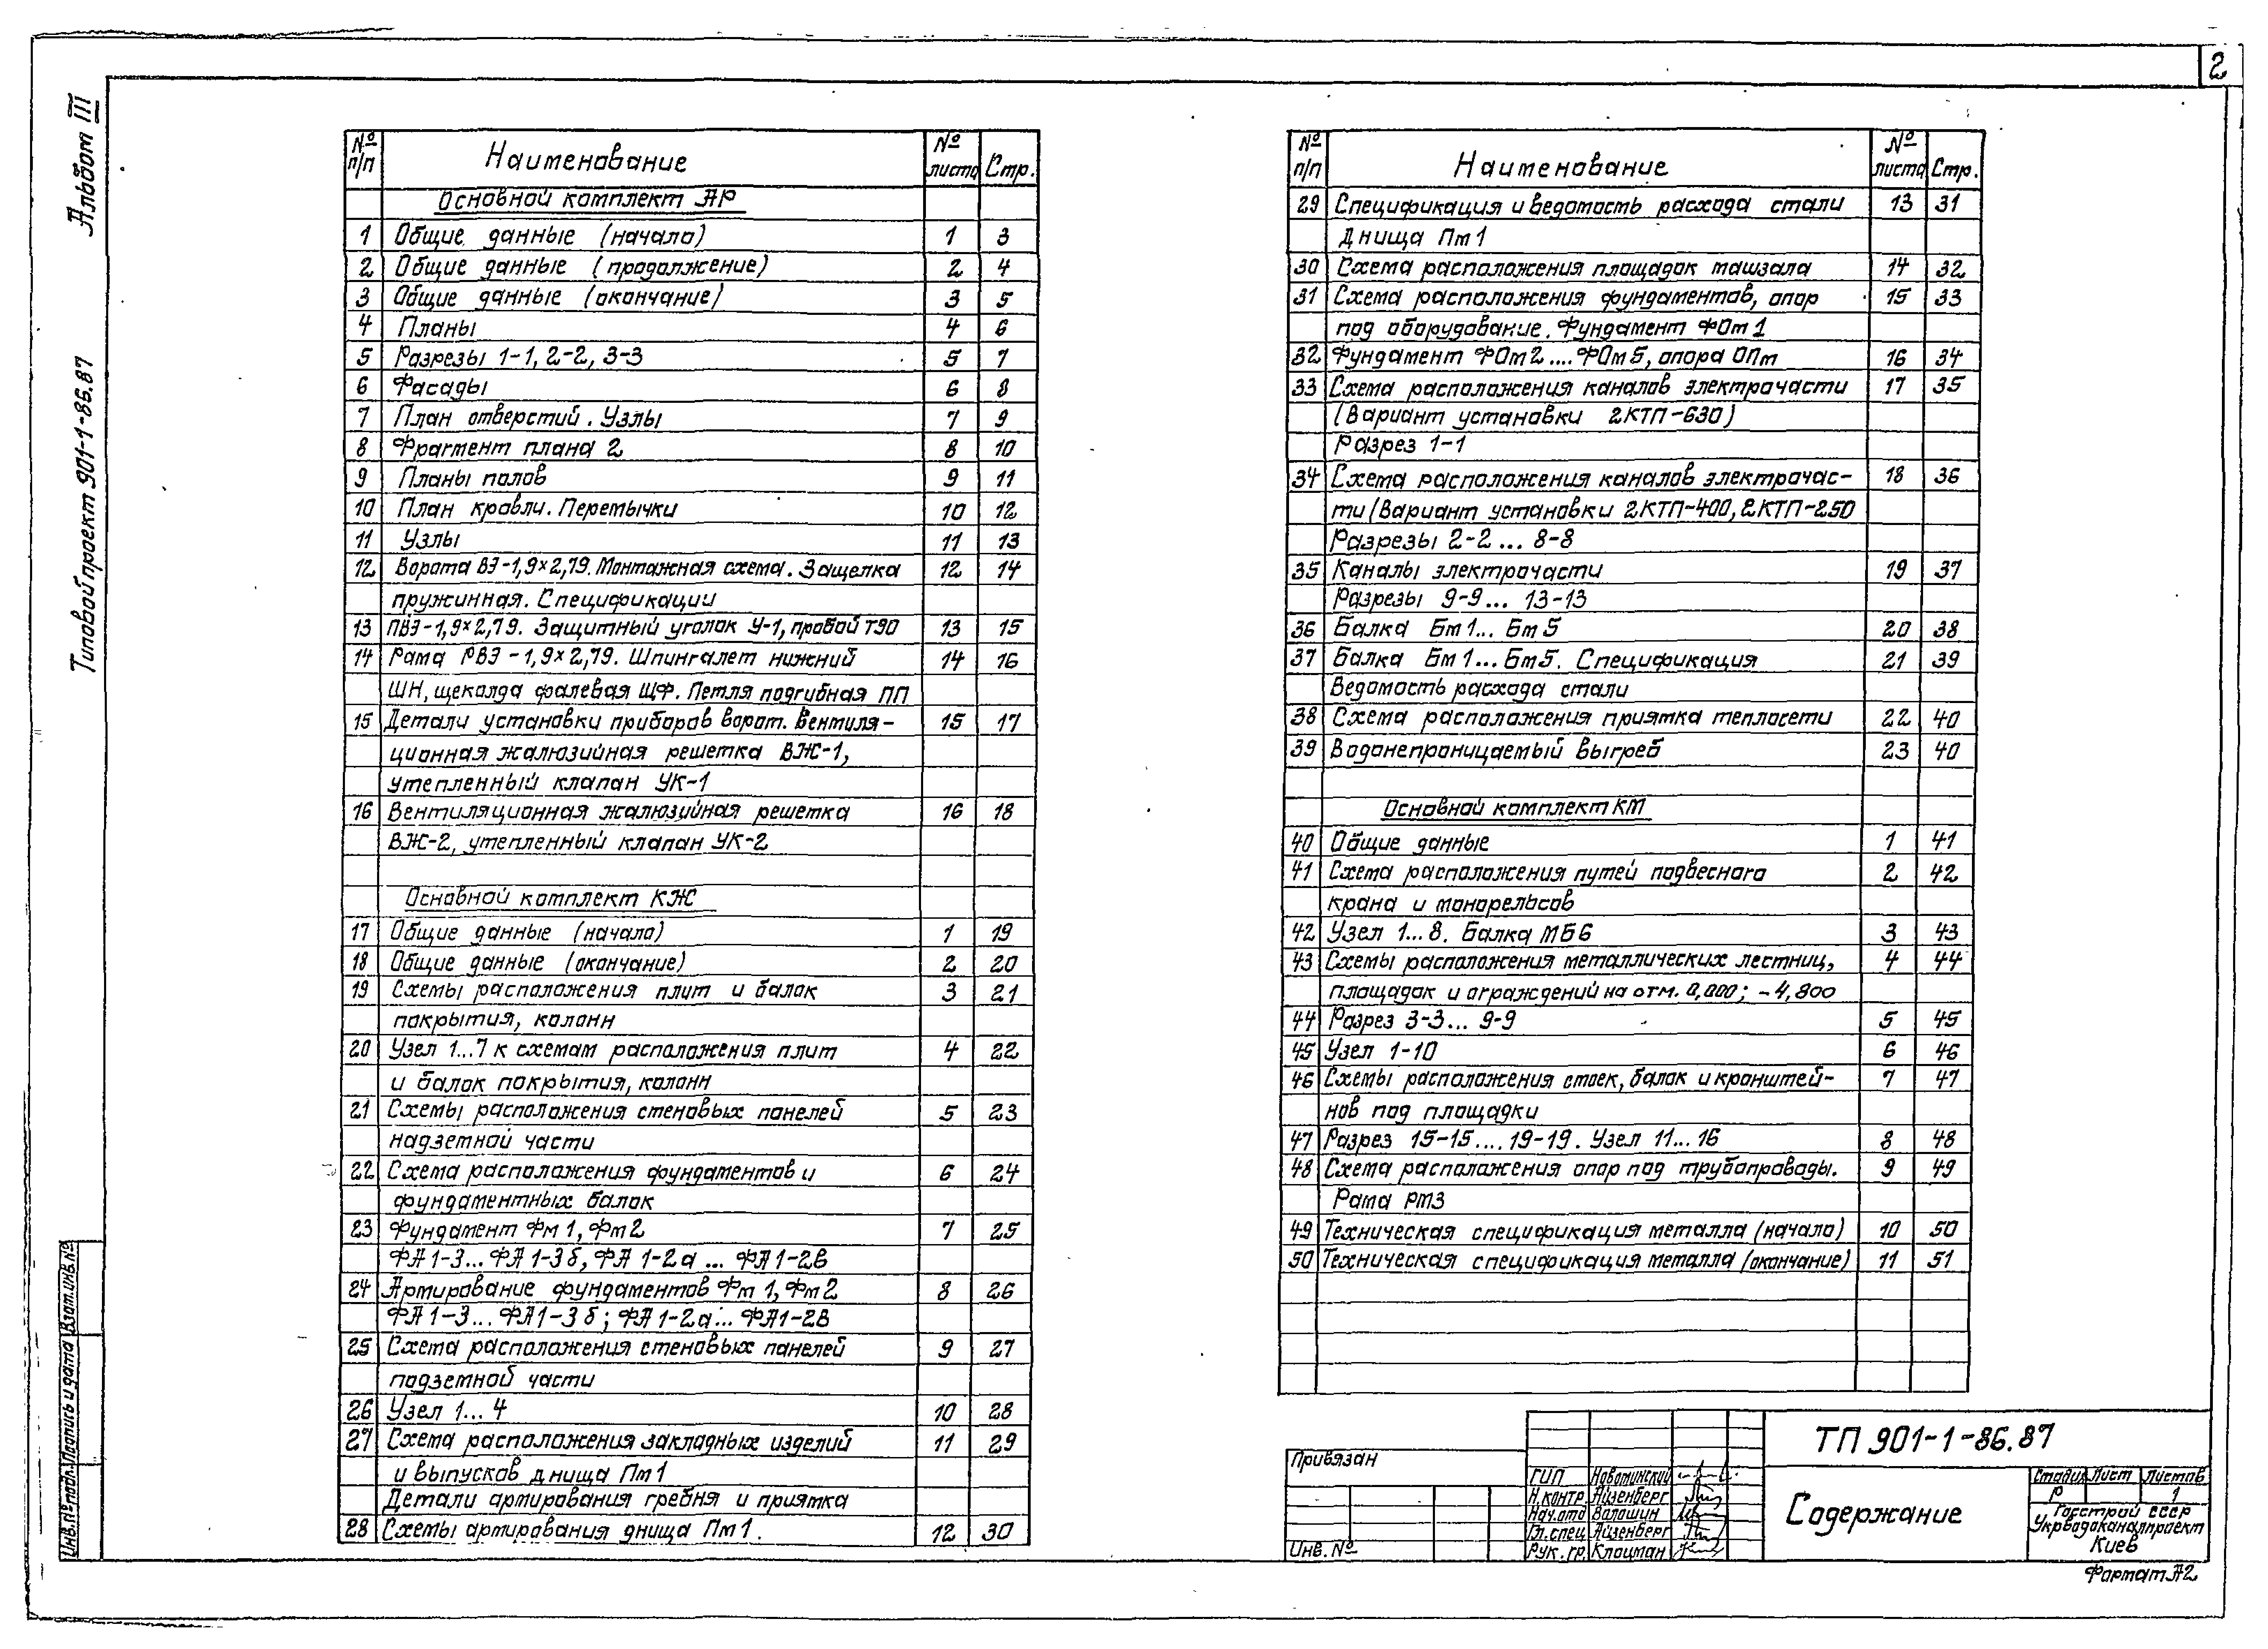 2
Альбом III
Типовой проект 901-1-86.87
№ п/п Наименование № листа Стр.
Основной комплект АР
1 Общие данные (начало) 1 3
2 Общие данные (продолжение) 2 4
3 Общие данные (окончание) 3 5
4 Планы 4 6
5 Разрезы 1-1, 2-2, 3-3 5 7
6 Фасады 6 8
7 План отверстий. Узлы 7 9
8 Фрагмент плана 2 8 10
9 Планы полов 9 11
10 План кровли. Перемычки 10 12
11 Узлы 11 13
12 Ворота ВЭ-1,9×2,79. Монтажная схема. Защелка 12 14
пружинная. Спецификации
13 ПВЭ-1,9×2,79. Защитный уголок У-1, пробой Т90 13 15
14 Рама РВЭ-1,9×2,79. Шпингалет нижний 14 16
ШН, щеколда фалевая ЩФ. Петля подгибная ПП
15 Детали установки приборов ворот. Вентиля- 15 17
ционная жалюзийная решетка ВЖ-1,
утепленный клапан УК-1
16 Вентиляционная жалюзийная решетка 16 18
ВЖ-2, утепленный клапан УК-2
Основной комплект КЖ
17 Общие данные (начало) 1 19
18 Общие данные (окончание) 2 20
19 Схемы расположения плит и балок 3 21
покрытия, колонн
20 Узел 1...7 к схемам расположения плит 4 22
и балок покрытия, колонн
21 Схемы расположения стеновых панелей 5 23
надземной части
22 Схема расположения фундаментов и 6 24
фундаментных балок
23 Фундамент Фм 1, Фм 2 7 25
ФА 1-3... ФА 1-3б, ФА 1-2а ... ФА 1-2в
24 Армирование фундаментов Фм 1, Фм 2 8 26
ФА 1-3... ФА 1-3б; ФА 1-2а... ФА 1-2в
25 Схема расположения стеновых панелей 9 27
подземной части
26 Узел 1... 4 10 28
27 Схема расположения закладных изделий 11 29
и выпусков днища Пм 1
Детали армирования гребня и приямка
28 Схемы армирования днища Пм 1. 12 30
№ п/п Наименование № листа Стр.
29 Спецификация и ведомость расхода стали 13 31
днища Пм 1
30 Схема расположения площадок машзала 14 32
31 Схема расположения фундаментов, опор 15 33
под оборудование. Фундамент ФОм 1
32 Фундамент ФОм 2 .... ФОм 5, опора ОПм 16 34
33 Схема расположения каналов электрочасти 17 35
(Вариант установки 2КТП-630)
Разрез 1-1
34 Схема расположения каналов электрочас- 18 36
ти (Вариант установки 2КТП-400, 2КТП-250
Разрезы 2-2 ... 8-8
35 Каналы электрочасти 19 37
Разрезы 9-9... 13-13
36 Балка Бм 1... Бм 5 20 38
37 Балка Бм 1... Бм 5. Спецификация 21 39
Ведомость расхода стали
38 Схема расположения приямка теплосети 22 40
39 Водонепроницаемый выгреб 23 40
Основной комплект КМ
40 Общие данные 1 41
41 Схема расположения путей подвесного 2 42
крана и монорельсов
42 Узел 1... 8. Балка МБ6 3 43
43 Схемы расположения металлических лестниц, 4 44
площадок и ограждений на отм. 0,000; -4,800
44 Разрез 3-3... 9-9 5 45
45 Узел 1-10 6 46
46 Схемы расположения стоек, балок и кронштей- 7 47
нов под площадки
47 Разрез 15-15.... 19-19. Узел 11... 16 8 48
48 Схема расположения опор под трубопроводы. 9 49
Рама РМ3
49 Техническая спецификация металла (начало) 10 50
50 Техническая спецификация металла (окончание) 11 51
Взам. инв. №
Подпись и дата
Инв. № подл.
Привязан
Инв. №
ГИП Новоминский
Н. контр. Айзенберг
Нач. отд Волошин
Гл. спец Айзенберг
Рук. гр. Клоцман
ТП 901-1-86.87
Содержание
Стадия Лист Листов
Р 1
Госстрой СССР
Укрводоканалпроект
Киев
Формат А2